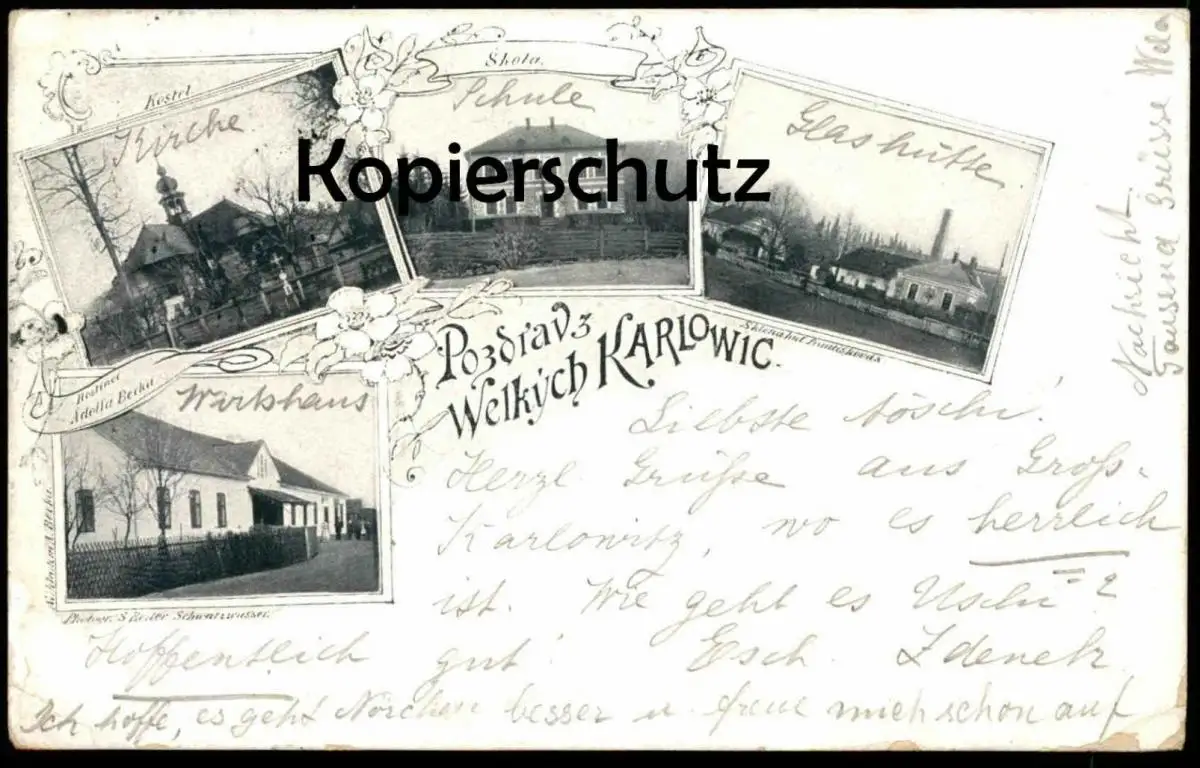 Kostel
Kirche
Škola.
Schule
Glashütte
Kopierschutz
Sklená huť Františkova
Pozdrav z
Welkých KARLOWIC.
Hostinec
Adolfa Berka
Wirtshaus
Photogr. S. Schwarzwasser.
Liebste
Herzl. Grüße aus Groß-
Karlowitz, wo es herrlich
ist. Wie geht es Uschi?
Hoffentlich gut! Zdenek
Ich hoffe, es geht Norchen besser u. freue mich schon auf
Nachricht.
Tausend Grüsse